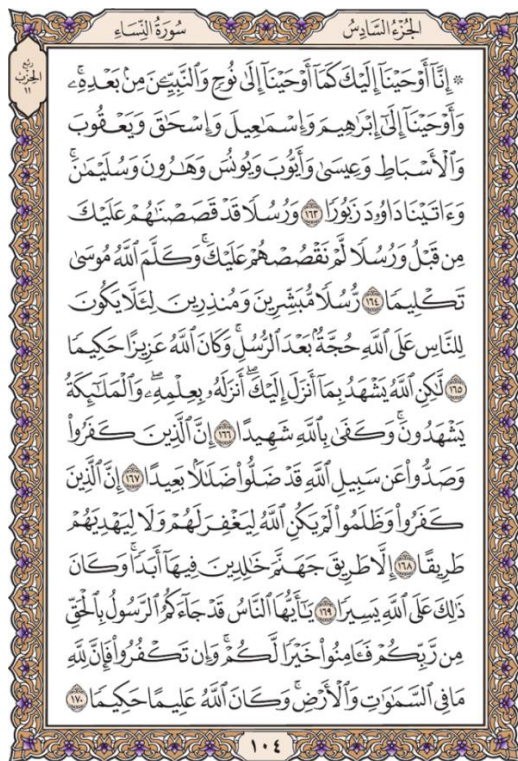 الجزء السادس
سورة النساء
ربع
الحزب
١١
۞ إِنَّآ أَوْحَيْنَآ إِلَيْكَ كَمَآ أَوْحَيْنَآ إِلَىٰ نُوحٍ وَٱلنَّبِيِّـۧنَ مِنۢ بَعْدِهِۦۚ
وَأَوْحَيْنَآ إِلَىٰٓ إِبْرَٰهِيمَ وَإِسْمَٰعِيلَ وَإِسْحَٰقَ وَيَعْقُوبَ
وَٱلْأَسْبَاطِ وَعِيسَىٰ وَأَيُّوبَ وَيُونُسَ وَهَٰرُونَ وَسُلَيْمَٰنَۚ
وَءَاتَيْنَا دَاوُۥدَ زَبُورًا ١٦٣ وَرُسُلًا قَدْ قَصَصْنَٰهُمْ عَلَيْكَ
مِن قَبْلُ وَرُسُلًا لَّمْ نَقْصُصْهُمْ عَلَيْكَۚ وَكَلَّمَ ٱللَّهُ مُوسَىٰ
تَكْلِيمًا ١٦٤ رُّسُلًا مُّبَشِّرِينَ وَمُنذِرِينَ لِئَلَّا يَكُونَ
لِلنَّاسِ عَلَى ٱللَّهِ حُجَّةٌۢ بَعْدَ ٱلرُّسُلِۚ وَكَانَ ٱللَّهُ عَزِيزًا حَكِيمًا
١٦٥ لَّٰكِنِ ٱللَّهُ يَشْهَدُ بِمَآ أَنزَلَ إِلَيْكَۖ أَنزَلَهُۥ بِعِلْمِهِۦۖ وَٱلْمَلَٰٓئِكَةُ
يَشْهَدُونَۚ وَكَفَىٰ بِٱللَّهِ شَهِيدًا ١٦٦ إِنَّ ٱلَّذِينَ كَفَرُوا۟
وَصَدُّوا۟ عَن سَبِيلِ ٱللَّهِ قَدْ ضَلُّوا۟ ضَلَٰلًۢا بَعِيدًا ١٦٧ إِنَّ ٱلَّذِينَ
كَفَرُوا۟ وَظَلَمُوا۟ لَمْ يَكُنِ ٱللَّهُ لِيَغْفِرَ لَهُمْ وَلَا لِيَهْدِيَهُمْ
طَرِيقًا ١٦٨ إِلَّا طَرِيقَ جَهَنَّمَ خَٰلِدِينَ فِيهَآ أَبَدًاۚ وَكَانَ
ذَٰلِكَ عَلَى ٱللَّهِ يَسِيرًا ١٦٩ يَٰٓأَيُّهَا ٱلنَّاسُ قَدْ جَآءَكُمُ ٱلرَّسُولُ بِٱلْحَقِّ
مِن رَّبِّكُمْ فَـَٔامِنُوا۟ خَيْرًا لَّكُمْۚ وَإِن تَكْفُرُوا۟ فَإِنَّ لِلَّهِ
مَا فِى ٱلسَّمَٰوَٰتِ وَٱلْأَرْضِۚ وَكَانَ ٱللَّهُ عَلِيمًا حَكِيمًا ١٧٠
١٠٤